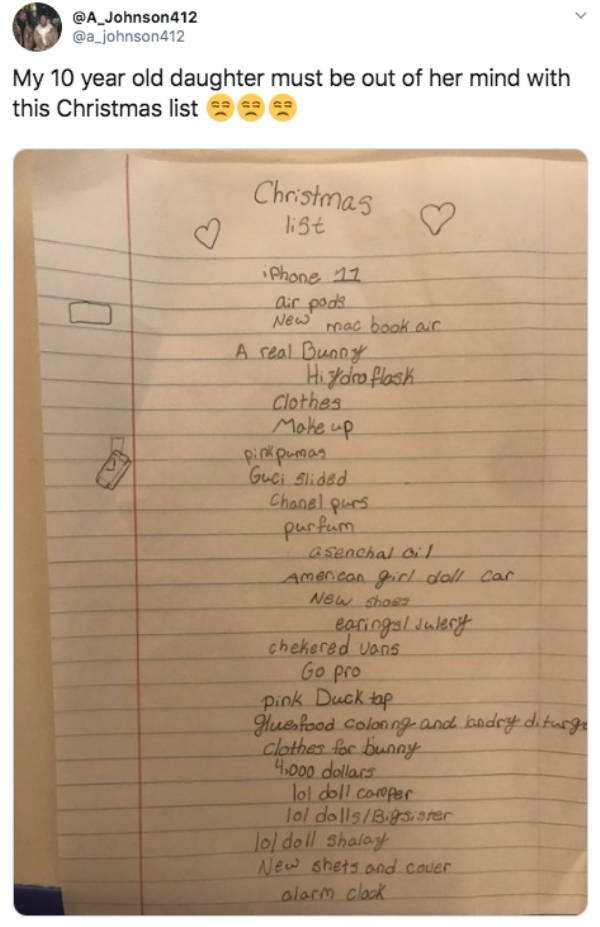 @A_Johnson412
@a_johnson412
My 10 year old daughter must be out of her mind with
this Christmas list 😒😒😒
Christmas
list
iPhone 11
air pods
New mac book air
A real Bunny
Hiydroflask
Clothes
Make up
pink pumas
Guci slided
Chanel purs
purfum
asenchal oil
American girl doll car
New shoes
earings/Julery
chekered vans
Go pro
pink Duck tap
glue, food coloring and landry diturge
Clothes for bunny
4,000 dollars
lol doll camper
lol dolls/Bigsister
lol doll shalay
New shets and cover
alarm clock